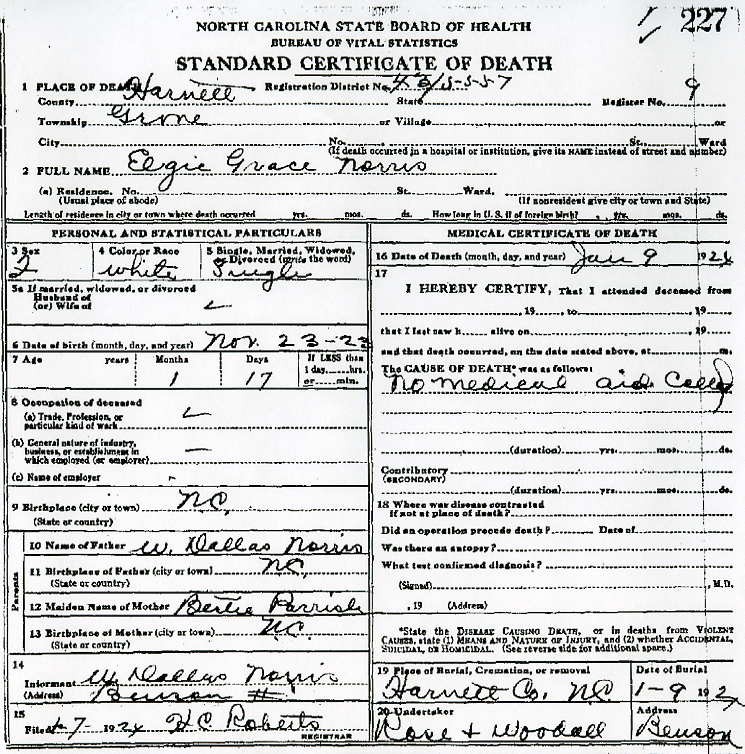 227
NORTH CAROLINA STATE BOARD OF HEALTH
BUREAU OF VITAL STATISTICS
STANDARD CERTIFICATE OF DEATH
1 PLACE OF DEATH Registration District No. 43/5-5-57 9
County Harnett State Register No.
Township Grove or Village or
City No. St. Ward
(If death occurred in a hospital or institution, give its NAME instead of street and number)
2 FULL NAME Elgie Grace Norris
(a) Residence. No. St. Ward.
(Usual place of abode) (If nonresident give city or town and State)
Length of residence in city or town where death occurred yrs. mos. ds. How long in U. S. if of foreign birth? yrs. mos. ds.
PERSONAL AND STATISTICAL PARTICULARS
3 Sex 4 Color or Race 5 Single, Married, Widowed,
or Divorced (write the word)
F White Single
5a If married, widowed, or divorced
Husband of
(or) Wife of
6 Date of birth (month, day, and year) Nov. 23-23
7 Age years Months Days If LESS than
1 day, hrs.
or min.
1 17
8 Occupation of deceased
(a) Trade, Profession, or
particular kind of work
(b) General nature of industry,
business, or establishment in
which employed (or employer)
(c) Name of employer
9 Birthplace (city or town) N.C.
(State or country)
Parents
10 Name of Father W. Dallas Norris
11 Birthplace of Father (city or town) N.C.
(State or country)
12 Maiden Name of Mother Bertie Parrish
13 Birthplace of Mother (city or town) N.C.
(State or country)
14
Informant W. Dallas Norris
(Address) Benson
15
Filed 1-7-1924 H C Roberts
REGISTRAR
MEDICAL CERTIFICATE OF DEATH
16 Date of Death (month, day, and year) Jan 9 1924
17
I HEREBY CERTIFY, That I attended deceased from
, 19 , to , 19
that I last saw h alive on , 19
and that death occurred, on the date stated above, at m.
The CAUSE OF DEATH* was as follows:
No medical aid Called
(duration) yrs. mos. ds.
Contributory
(SECONDARY)
(duration) yrs. mos. ds.
18 Where was disease contracted
if not at place of death?
Did an operation precede death? Date of
Was there an autopsy?
What test confirmed diagnosis?
(Signed) , M.D.
, 19 (Address)
*State the DISEASE CAUSING DEATH, or in deaths from VIOLENT
CAUSES, state (1) MEANS AND NATURE OF INJURY, and (2) whether ACCIDENTAL,
SUICIDAL, or HOMICIDAL. (See reverse side for additional space.)
19 Place of Burial, Cremation, or removal Date of Burial
Harnett Co, N.C. 1-9 192
20 Undertaker Address
Rose & Woodall Benson